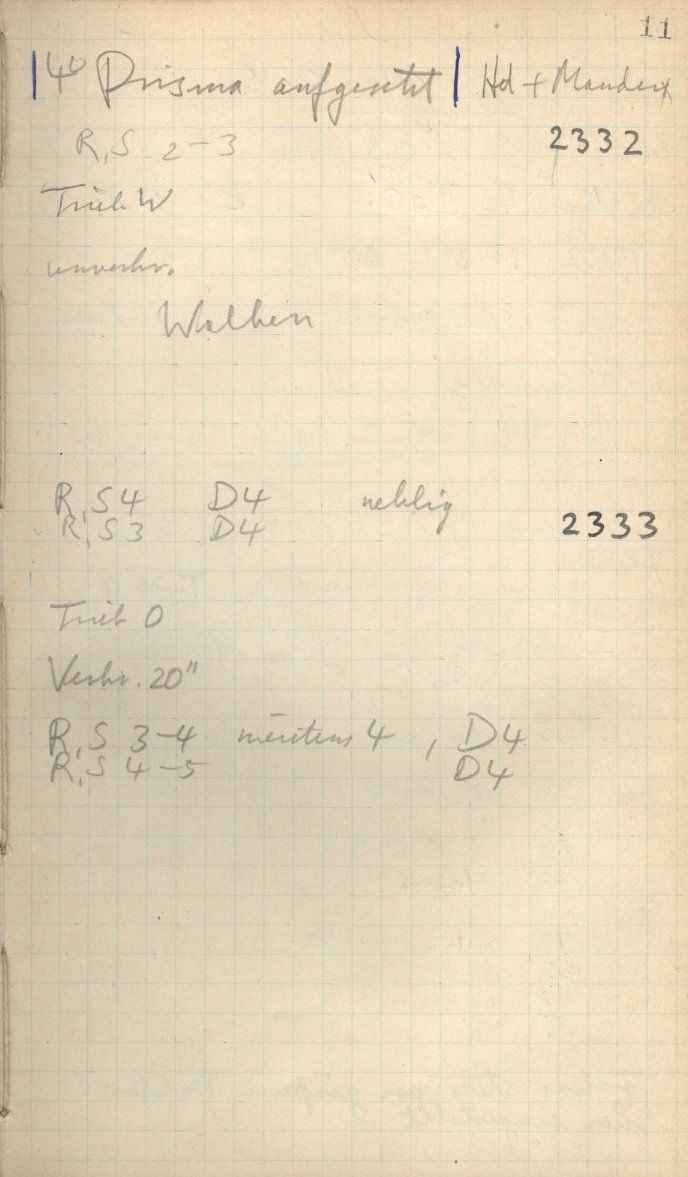 11
|4° Prisma aufgesetzt| Hd +
R, S 2-3 2332
Trieb W
unverbr.
Wolken
R, S 4 D4 neblig
R, S 3 D4 2333
Trieb O
Verbr. 20"
R, S 3-4 meistens 4 , D4
R, S 4-5 D4